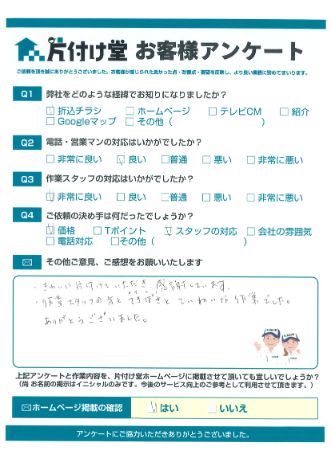 片付け堂 お客様アンケート
ご依頼を頂き誠にありがとうございました。お客様が感じられた良かった点・お叱り・要望を反映し、より良い業務に努めてまいります。
Q1 弊社をどのような経緯でお知りになりましたか?
□折込チラシ □ホームページ □テレビCM □紹介
□Googleマップ □その他( )
Q2 電話・営業マンの対応はいかがでしたか?
□非常に良い ☑良い □普通 □悪い □非常に悪い
Q3 作業スタッフの対応はいかがでしたか?
☑非常に良い □良い □普通 □悪い □非常に悪い
Q4 ご依頼の決め手は何だったでしょうか?
☑価格 □Tポイント ☑スタッフの対応 □会社の雰囲気
□電話対応 □その他( )
その他ご意見、ご感想をお願いいたします
・きれいに片付けていただき 感謝しています。
・作業スタッフの方も てきぱきと ていねいな 作業でした。
ありがとうございました。
上記アンケートと作業内容を、片付け堂ホームページに掲載させて頂いても宜しいでしょうか?
(尚 お名前の掲示はイニシャルのみです。今後のサービス向上のご参考として利用させて頂きます。)
ホームページ掲載の確認 ☑はい □いいえ
アンケートにご協力いただきありがとうございました。